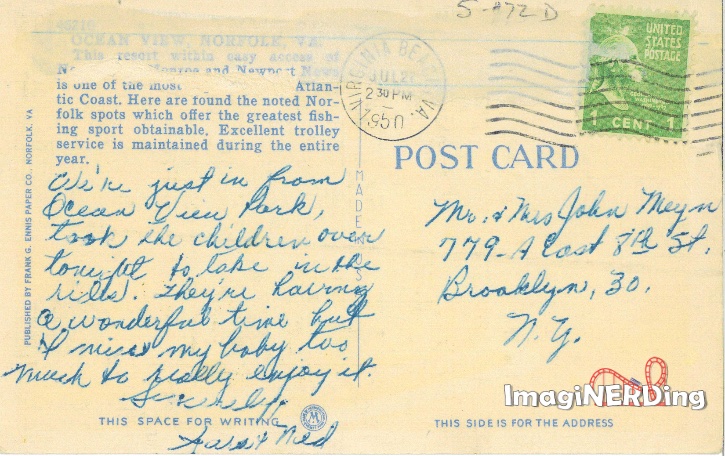 S-472 D
OCEAN VIEW, NORFOLK, VA.
This resort within easy access of
Monroe and Newport News
is one of the most Atlan-
tic Coast. Here are found the noted Nor-
folk spots which offer the greatest fish-
ing sport obtainable. Excellent trolley
service is maintained during the entire
year.
VIRGINIA BEACH, VA.
JUL 2
2 30 PM
1950
UNITED
STATES
POSTAGE
1 CENT 1
POST CARD
PUBLISHED BY FRANK G. ENNIS PAPER CO., NORFOLK, VA
MADE
We're just in from
Ocean View Park,
took the children over
tonight to take in the
rides. They're having
a wonderful time but
I miss my baby too
much to really enjoy it.
Sincerely,
& Ned
Mr. & Mrs John Meyn
779-A East 8th St.
Brooklyn, 30.
N.Y.
THIS SPACE FOR WRITING
THIS SIDE IS FOR THE ADDRESS
ImagiNERDing